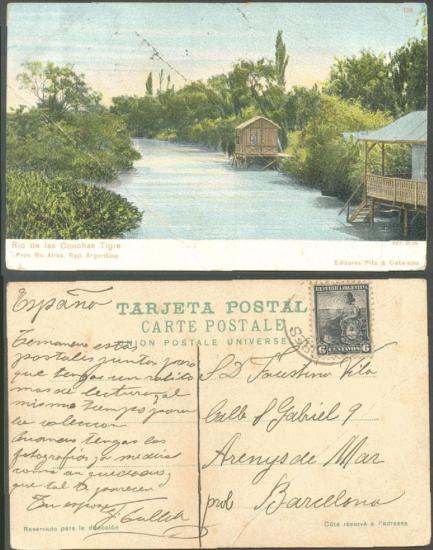 124
Rio de las Conchas Tigre
Prov. Bs. Aires. Rep. Argentina
Editores Pita & Catalano
España
TARJETA POSTAL
CARTE POSTALE
UNION POSTALE UNIVERSELLE
REPUBLICA ARGENTINA
6 CENTAVOS 6
postales juntas para
que tengas un ratito
mas de lectura, al
mismo tiempo para
la coleccion
tengas las
fotografias,
que tal te parecen
Tu esposo
S. D. Faustino Vila
Calle S Gabriel 9
Arenys de Mar
prob Barcelona
Reservado para la dirección
Côté réservé à l'adresse